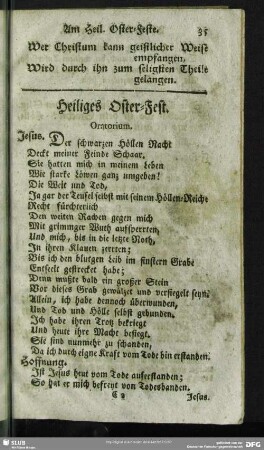 Am Heil. Oster-Feste. 35
Wer Christum kann geistlicher Weise
empfangen,
Wird durch ihn zum seligsten Theile
gelangen.
Heiliges Oster-Fest.
Oratorium.
Jesus. Der schwarzen Höllen Nacht
Deckt meiner Feinde Schaar,
Sie hatten mich in meinem Leben
Wie starke Löwen ganz umgeben!
Die Welt und Tod,
Ja gar der Teufel selbst mit seinem Höllen-Reiche
Recht fürchterlich
Den weiten Rachen gegen mich
Mit grimmger Wuth aufsperrten,
Und mich, bis in die letzte Noth,
In ihren Klauen zerrten;
Bis ich den blutgen Leib im finstern Grabe
Entseelt gestrecket habe;
Denn mußte bald ein großer Stein
Vor dieses Grab gewälzet und versiegelt seyn.
Allein, ich habe dennoch überwunden,
Und Tod und Hölle selbst gebunden.
Ich habe ihren Trotz bekriegt
Und heute ihre Macht besiegt.
Sie sind nunmehr zu schanden,
Da ich durch eigne Kraft vom Tode bin erstanden.
Hoffnung.
Ist Jesus heut vom Tode auferstanden;
So hat er mich befreyt von Todesbanden.
C 2 Jesus.
SLUB